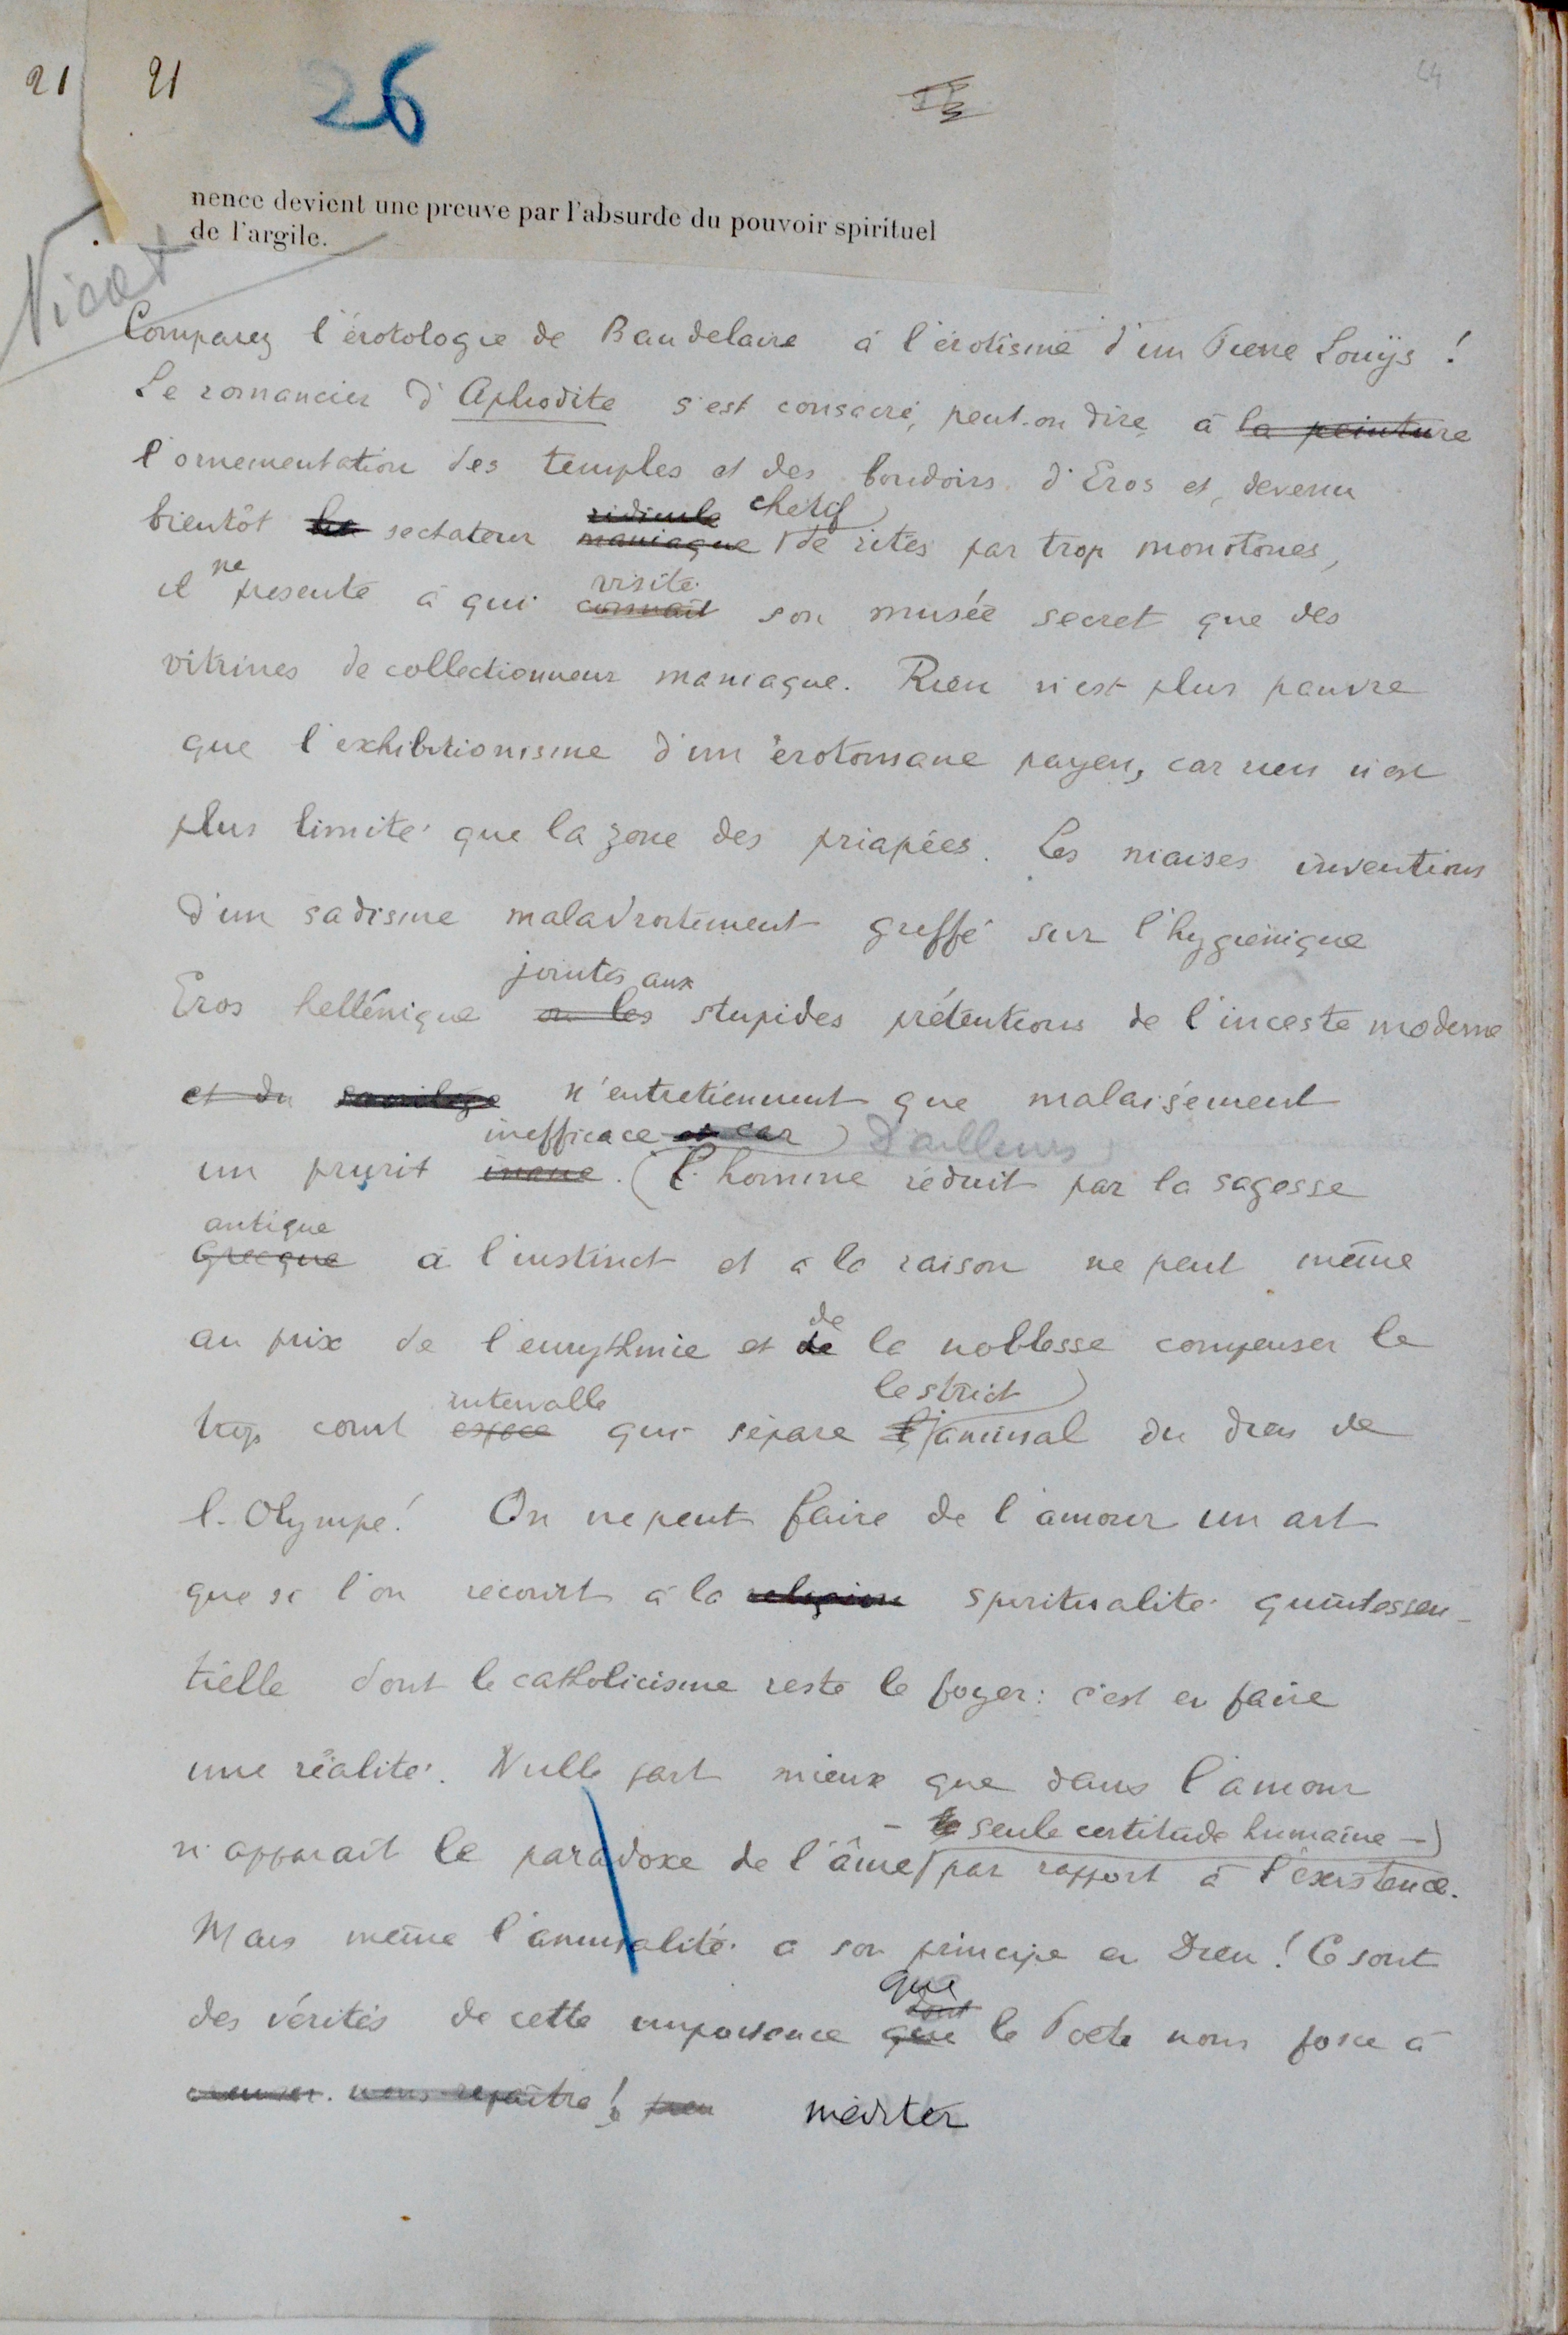 21 21 26 24
nence devient une preuve par l'absurde du pouvoir spirituel
de l'argile.
Nicat
Comparez l'érotologie de Baudelaire à l'érotisme d'un Pierre Louÿs !
Le romancier d'Aphrodite s'est consacré, peut-on dire, à la peinture
l'ornementation des temples et des boudoirs d'Eros et, devenu
ridicule chétif
bientôt sectateur maniaque de rites par trop monotones,
ne visite
il présente à qui connait son musée secret que des
vitrines de collectionneur maniaque. Rien n'est plus pauvre
que l'exhibitionisme d'un érotomane payen, car rien n'est
plus limité que la zone des priapées. Les niaises inventions
d'un sadisme maladroitement greffé sur l'hygiénique
jointes aux
Eros hellénique ou les stupides prétentions de l'inceste moderne
et du sacrilège n'entretiennent que malaisément
inefficace et car D'ailleurs
un prurit inane. (L'homme réduit par la sagesse
antique
Grecque à l'instinct et à la raison ne peut même
de
au prix de l'eurythmie et de la noblesse compenser le
intervalle le strict
trop court espace qui sépare l'animal du dieu de
l'Olympe ! On ne peut faire de l'amour un art
que si l'on recourt à la religion spiritualité quintessen-
tielle dont le catholicisme reste le foyer : c'est en faire
une réalité. Nulle part mieux que dans l'amour
– la seule certitude humaine –
n'apparait le paradoxe de l'âme par rapport à l'existence.
Mais même l'animalité a son principe en Dieu ! Ce sont
que
dont
des vérités de cette importance que le Poète nous force à
creuser. nous repaître ! méditer